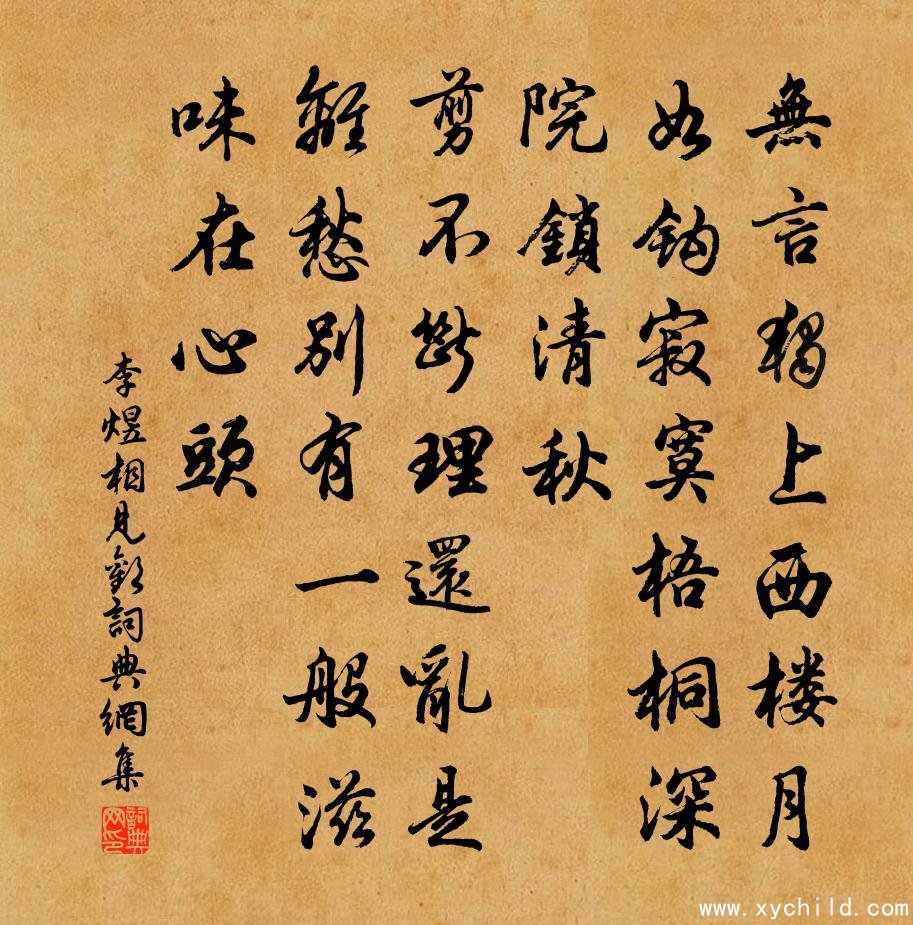 無言獨上西楼月
如鈎寂寞梧桐深
院鎖清秋
剪不斷理還亂是
離愁别有一般滋
味在心頭
李煜相見歡詞典網集
詞典网印
www.xychild.com